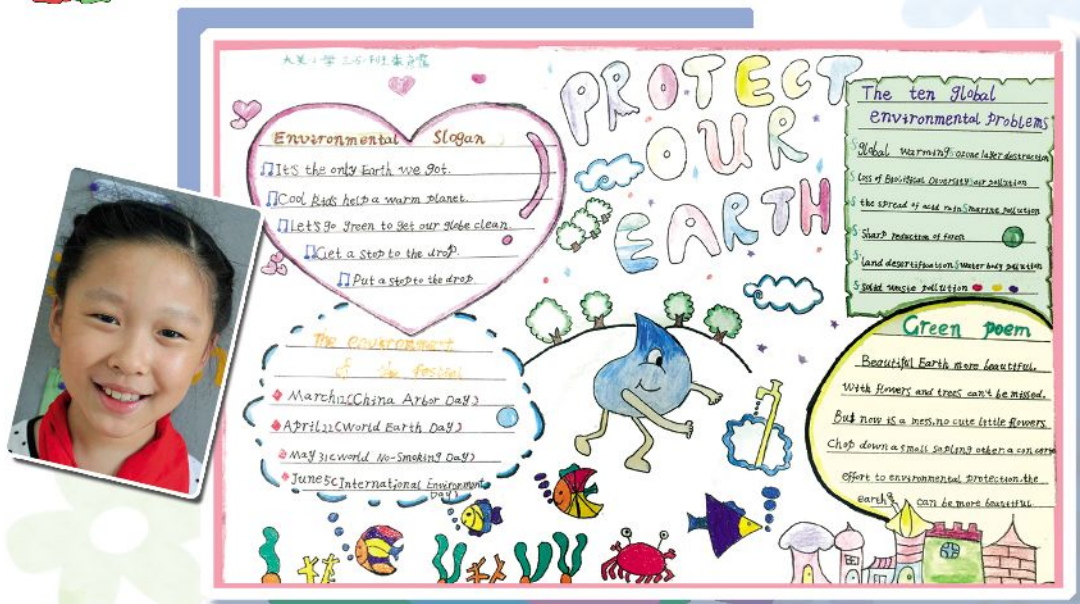 PROTECT
OUR
EARTH
Environmental Slogan
It's the only Earth we got.
Cool kids help a warm planet.
Let's go green to get our globe clean.
Get a stop to the drop.
Put a stop to the drop
The environment
of the festival
March12(China Arbor Day)
April22(World Earth Day)
May 31(World No-Smoking Day)
June5(International Environment
Day)
The ten global
environmental problems
global warming ozone layer destruction
loss of Biological Diversity air pollution
the spread of acid rain marine pollution
Sharp reduction of forest
land desertification water body pollution
solid waste pollution
Green poem
Beautiful Earth more beautiful.
With flowers and trees can't be missed.
But now is a mess, no cute little flowers
Chop down a small sapling other a concerte
effort to environmental protection, the
earth can be more beautiful